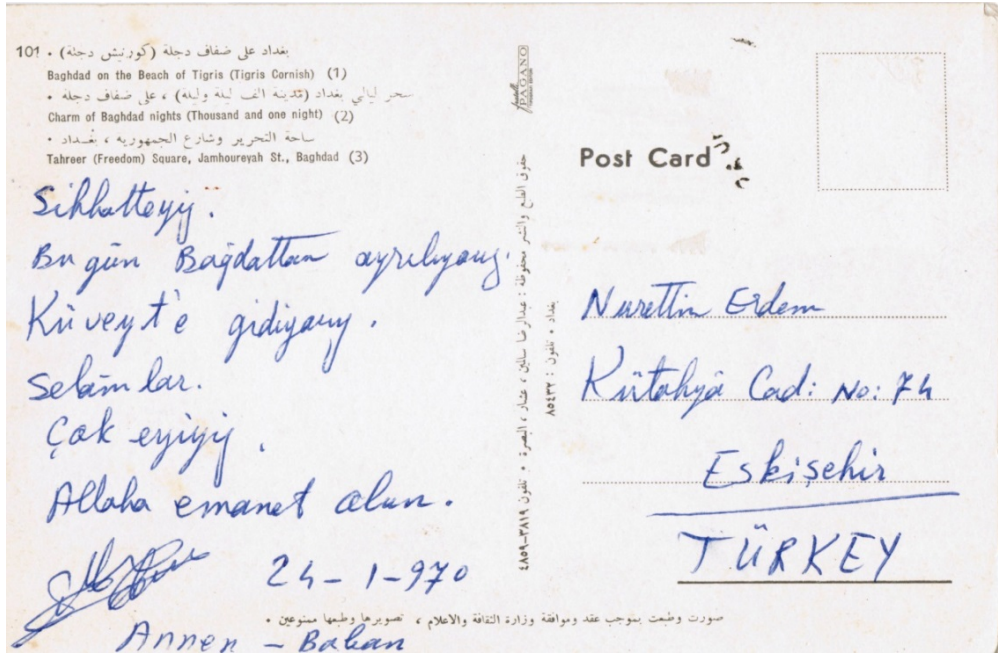 101 . بغداد على ضفاف دجلة (كورنيش دجلة)
Baghdad on the Beach of Tigris (Tigris Cornish) (1)
سحر ليالي بغداد (مدينة الف ليلة وليلة) ، على ضفاف دجلة .
Charm of Baghdad nights (Thousand and one night) (2)
ساحة التحرير وشارع الجمهورية ، بغداد .
Tahreer (Freedom) Square, Jamhoureyah St., Baghdad (3)
Sihhatteyiy.
Bu gün Bağdattan ayrılıyoruz.
Küveyt'e gidiyoruz.
Selâmlar.
Çok eyiyiy.
Allaha emanet olun.
24-1-970
Annen - Baban
PAGANO
حقوق الطبع والنشر محفوظة : عبدالرضا سالمين ، عشار ، البصرة • تلفون ٣٨١٩-٤٨٥٩
بغداد • تلفون : ٨٥٤٣٢
Post Card
Nurettin Erdem
Kütahya Cad: No: 74
Eskişehir
TÜRKEY
صورت وطبعت بموجب عقد وموافقة وزارة الثقافة والاعلام ، تصويرها وطبعها ممنوعين .